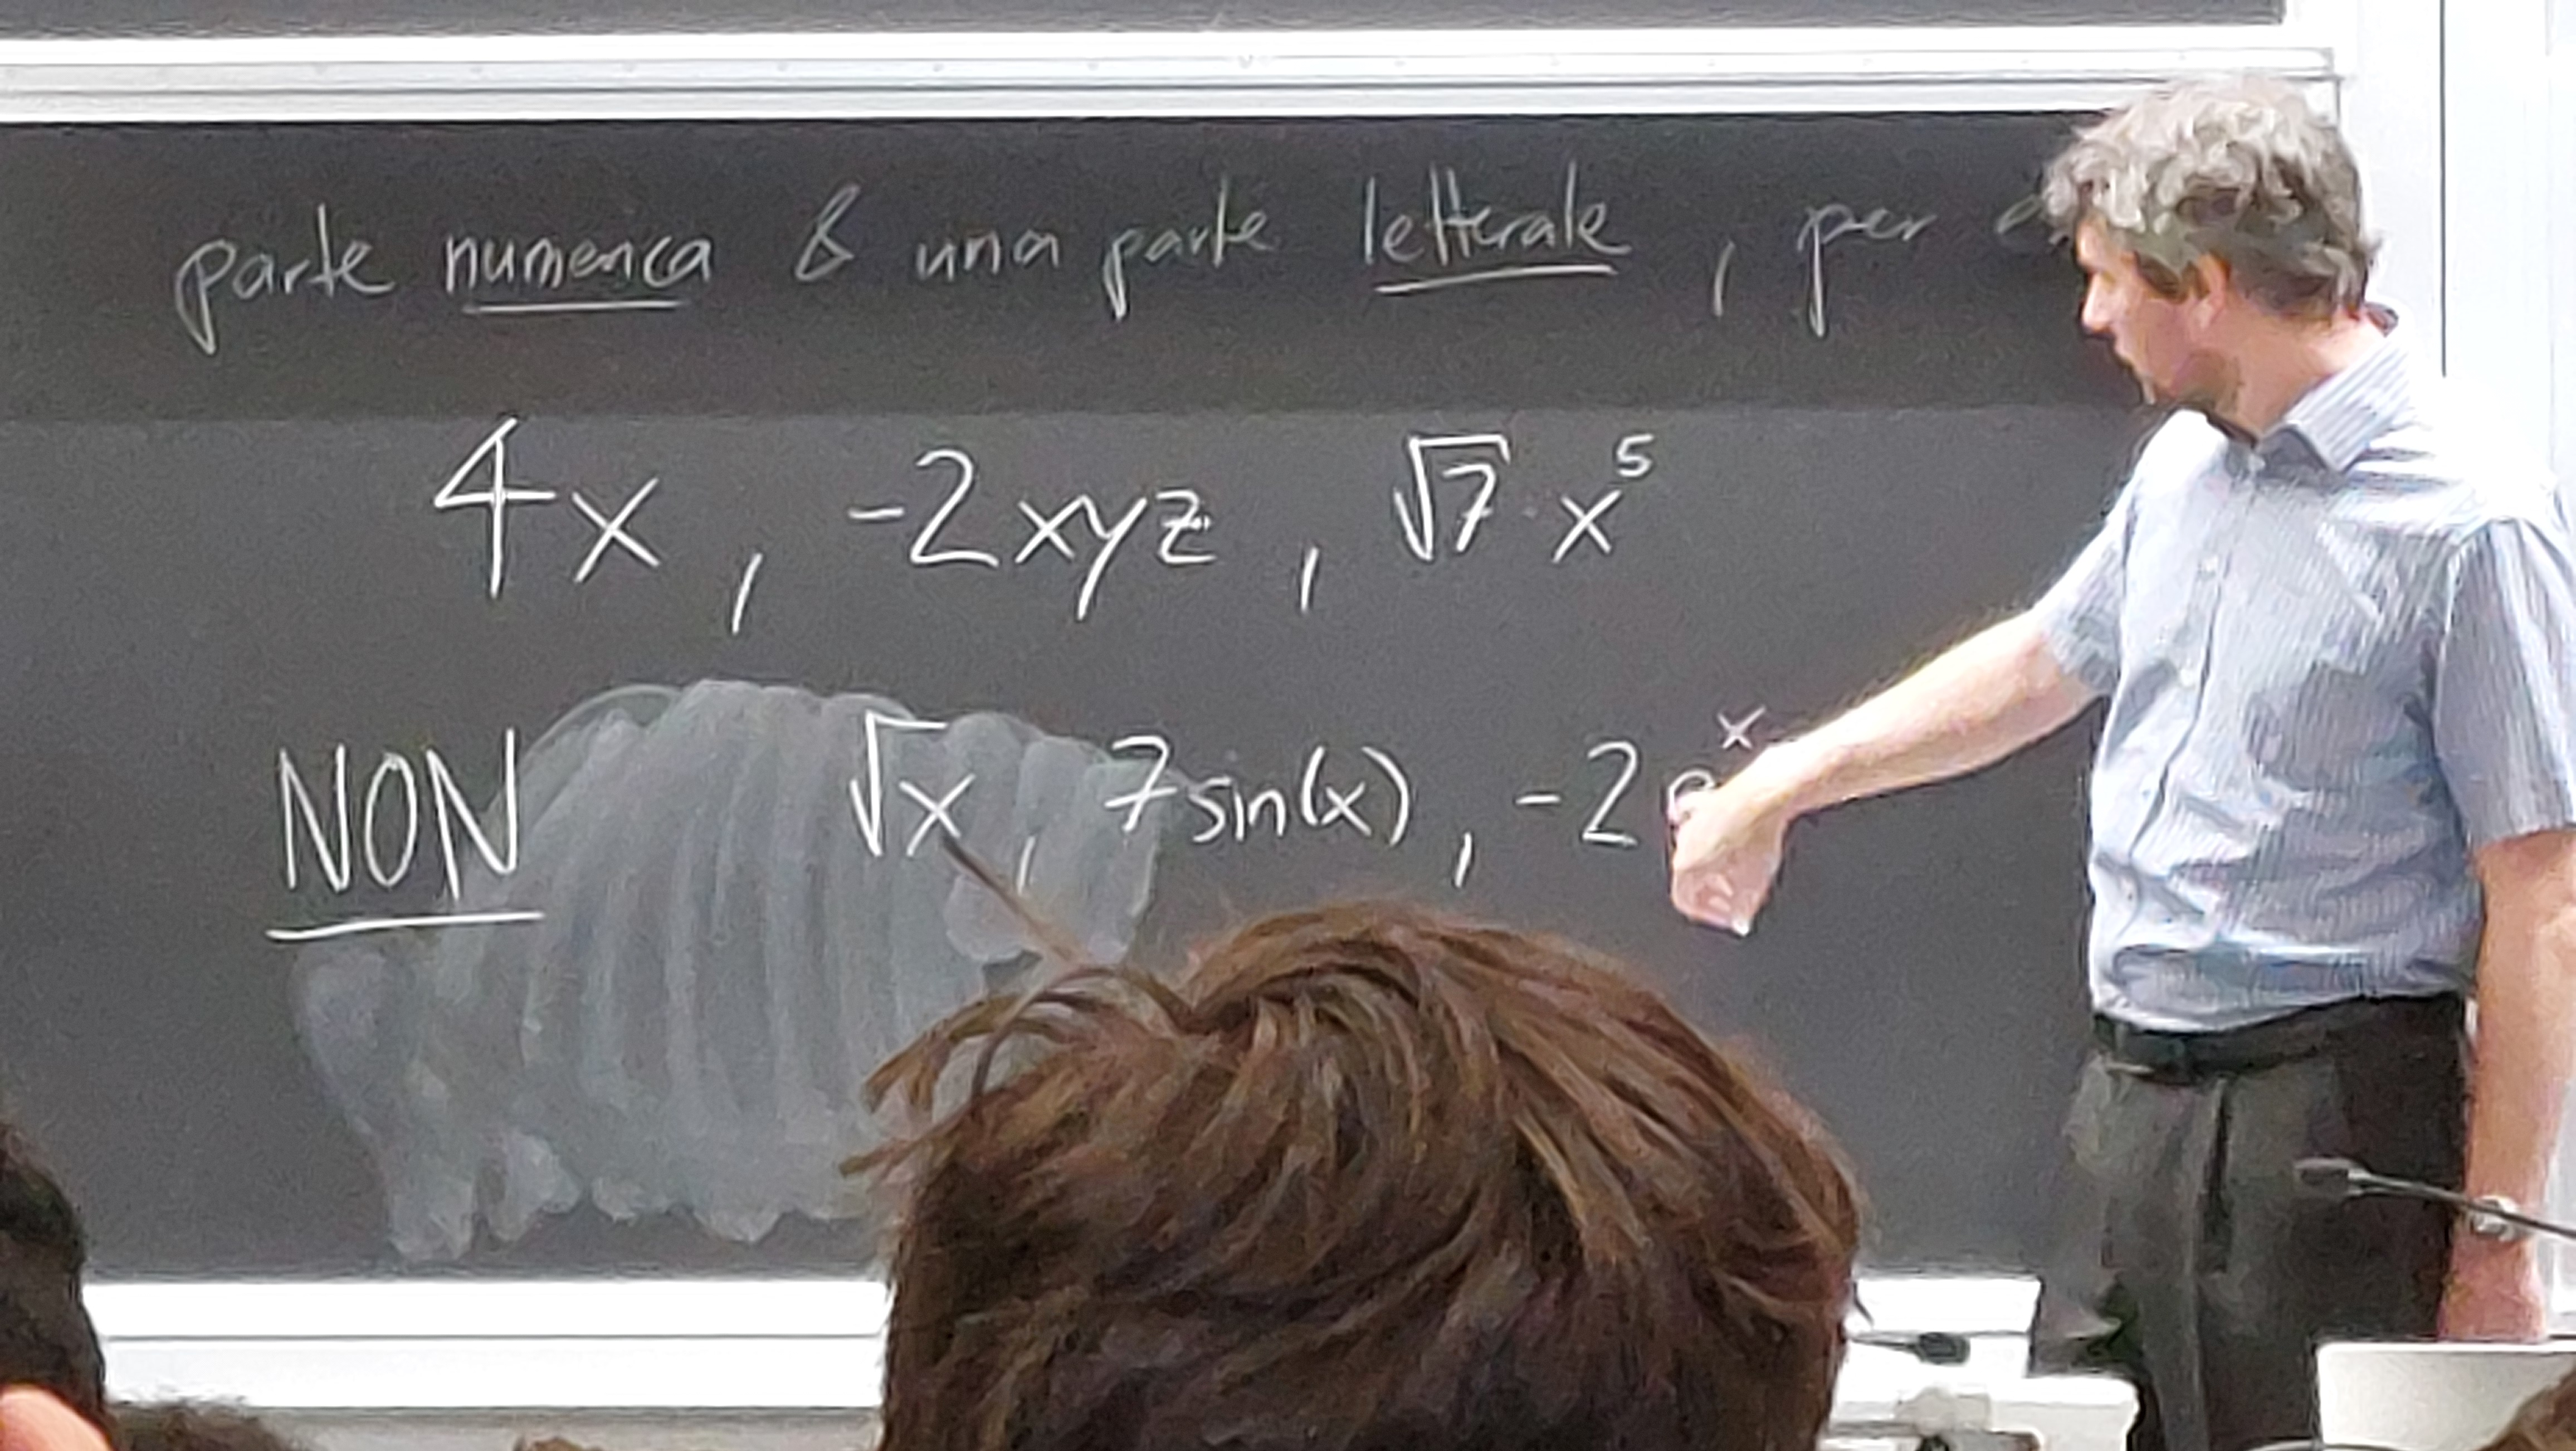 parte numerica & una parte letterale, per
4x, -2xyz, √7 x⁵
NON √x, 7sin(x), -2eˣ